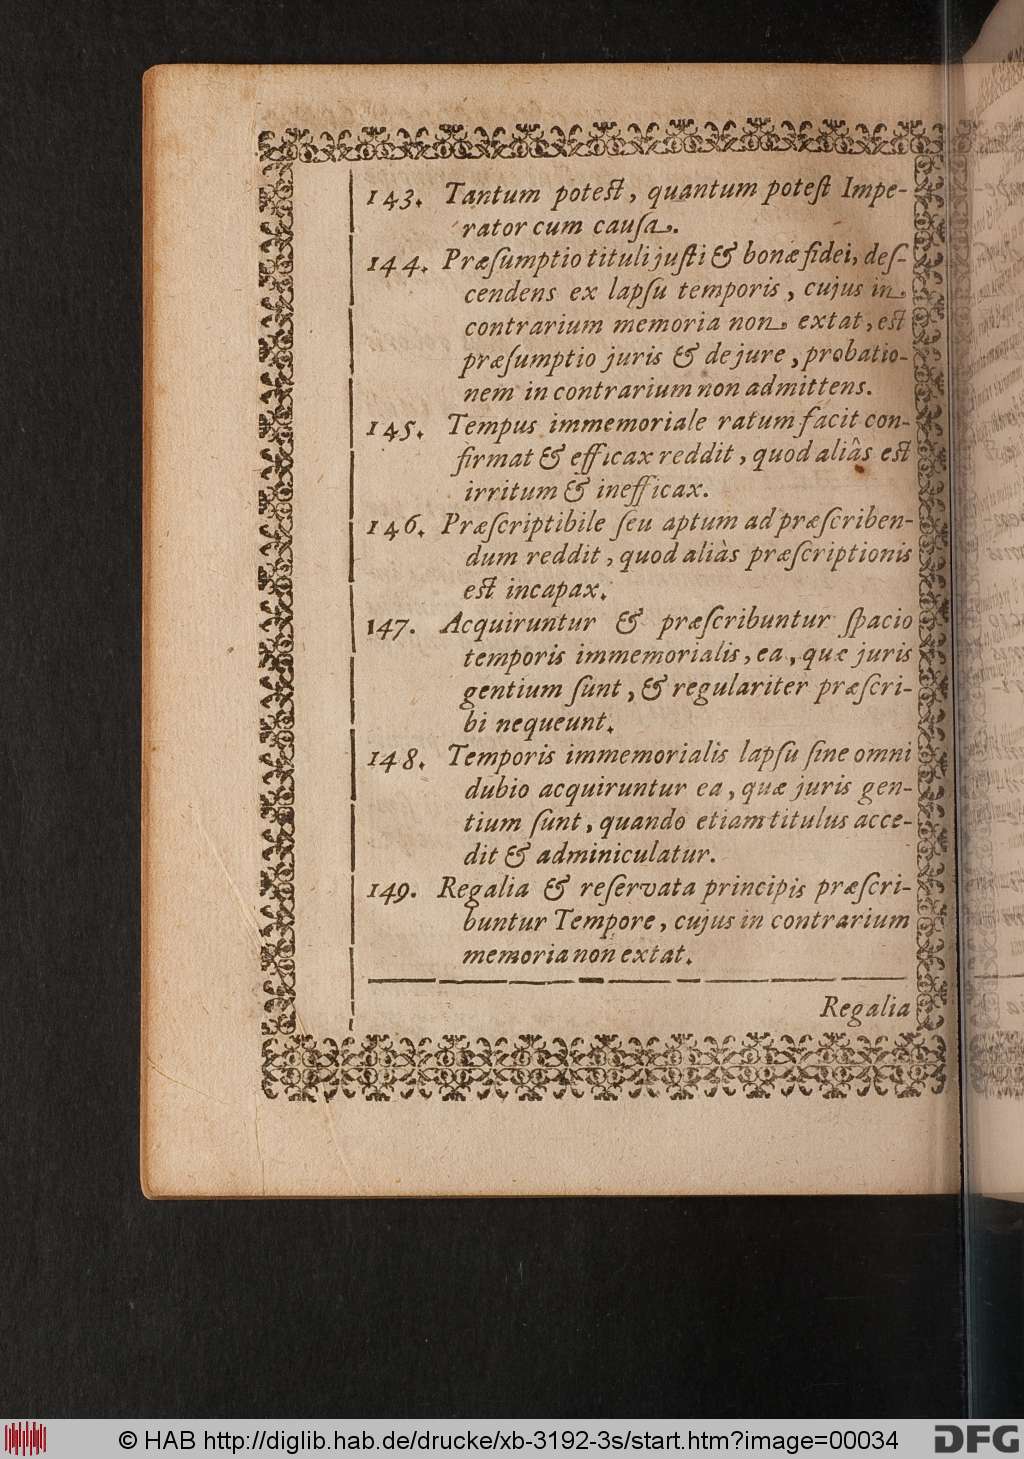 143. Tantum potest, quantum potest Impe-
rator cum causa.
144. Præſumptio tituli juſti & bonæ fidei, deſ-
cendens ex lapſu temporis, cujus in
contrarium memoria non extat, est
præſumptio juris & de jure, probatio-
nem in contrarium non admittens.
145. Tempus immemoriale ratum facit con-
firmat & efficax reddit, quod aliâs est
irritum & inefficax.
146. Præſcriptibile ſeu aptum ad præſcriben-
dum reddit, quod aliàs præſcriptionis
est incapax.
147. Acquiruntur & præſcribuntur ſpacio
temporis immemorialis, ea, quæ juris
gentium ſunt, & regulariter præſcri-
bi nequeunt.
148. Temporis immemorialis lapſu ſine omni
dubio acquiruntur ea, quæ juris gen-
tium ſunt, quando etiam titulus acce-
dit & adminiculatur.
149. Regalia & reſervata principis præſcri-
buntur Tempore, cujus in contrarium
memoria non extat.
Regalia
© HAB http://diglib.hab.de/drucke/xb-3192-3s/start.htm?image=00034
DFG